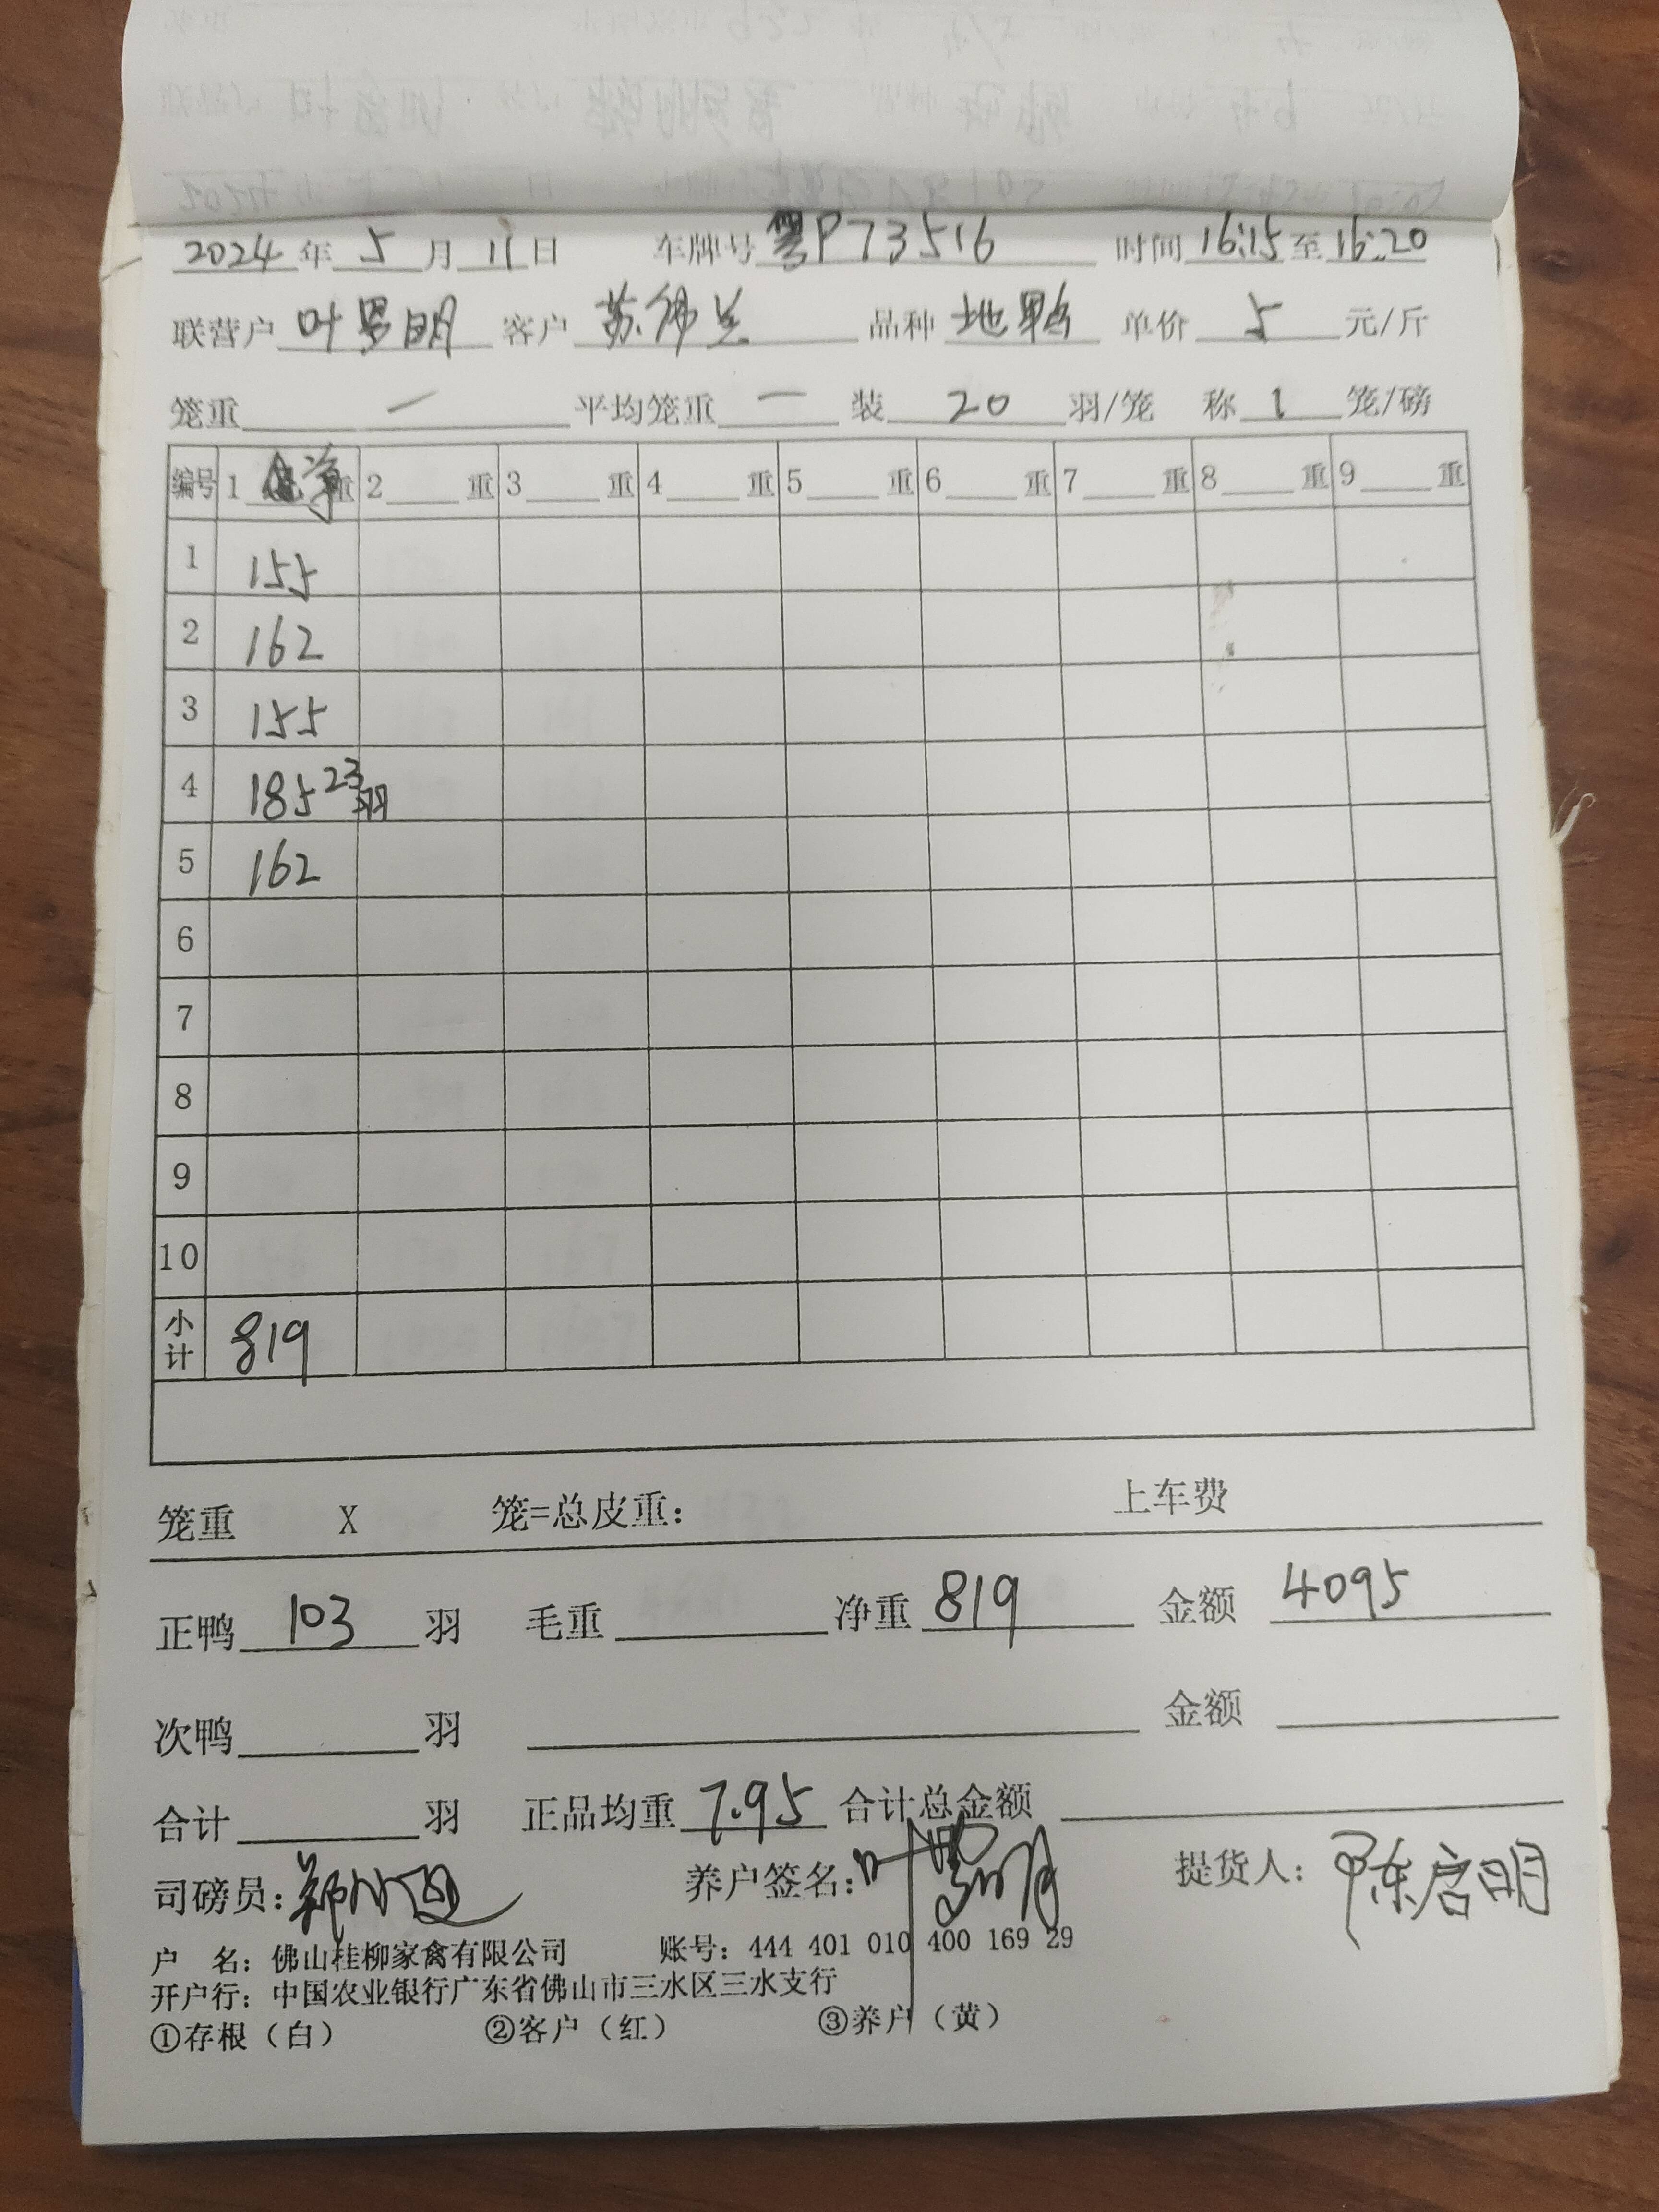 2024年5月11日 车牌号粤P73516 时间16:15至16:20
联营户叶昙明 客户苏伟兰 品种地鸭 单价5元/斤
笼重一 平均笼重一 装20羽/笼 称1笼/磅
编号 1净重 2重 3重 4重 5重 6重 7重 8重 9重
1 155
2 162
3 155
4 185 23羽
5 162
6
7
8
9
10
小计 819
笼重 X 笼=总皮重: 上车费
正鸭103羽 毛重 净重819 金额4095
次鸭羽 金额
合计羽 正品均重7.95 合计总金额
司磅员: 养户签名: 提货人:陈启明
户 名:佛山桂柳家禽有限公司 账号:444 401 010 400 169 29
开户行:中国农业银行广东省佛山市三水区三水支行
①存根(白) ②客户(红) ③养户(黄)